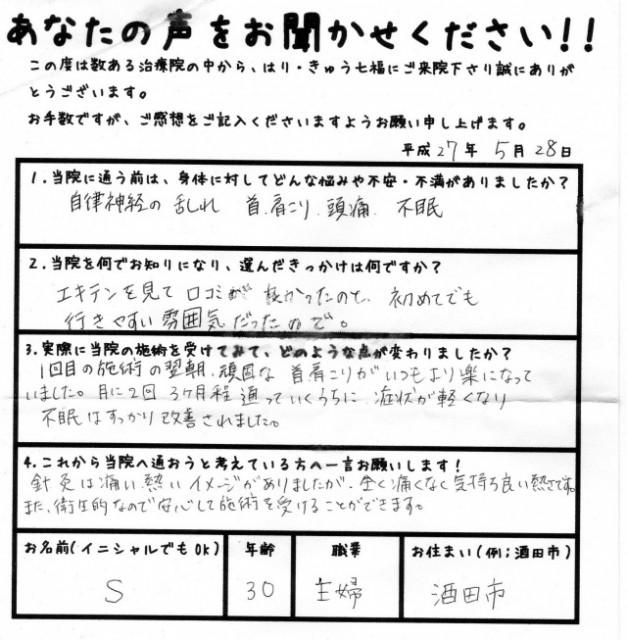 あなたの声をお聞かせください!!
この度は数ある治療院の中から、はり・きゅう七福にご来院下さり誠にありが
とうございます。
お手数ですが、ご感想をご記入くださいますようお願い申し上げます。
平成27年 5月28日
1.当院に通う前は、身体に対してどんな悩みや不安・不満がありましたか?
自律神経の乱れ 首.肩こり.頭痛. 不眠
2.当院を何でお知りになり、選んだきっかけは何ですか?
エキテンを見て 口コミが 良かったのと、初めてでも
行きやすい雰囲気だったので。
3.実際に当院の施術を受けてみて、どのような点が変わりましたか?
1回目の施術の翌朝、頑固な 首肩こりがいつもより楽になって
いました。月に2回 3ヶ月程 通っていくうちに 症状が軽くなり
不眠はすっかり改善されました。
4.これから当院へ通おうと考えている方へ一言お願いします!
針灸は痛い.熱いイメージがありましたが、全く痛くなく気持ち良い熱さです。
また、衛生的なので安心して施術を受けることができます。
お名前(イニシャルでもOK) 年齢 職業 お住まい(例;酒田市)
S 30 主婦 酒田市